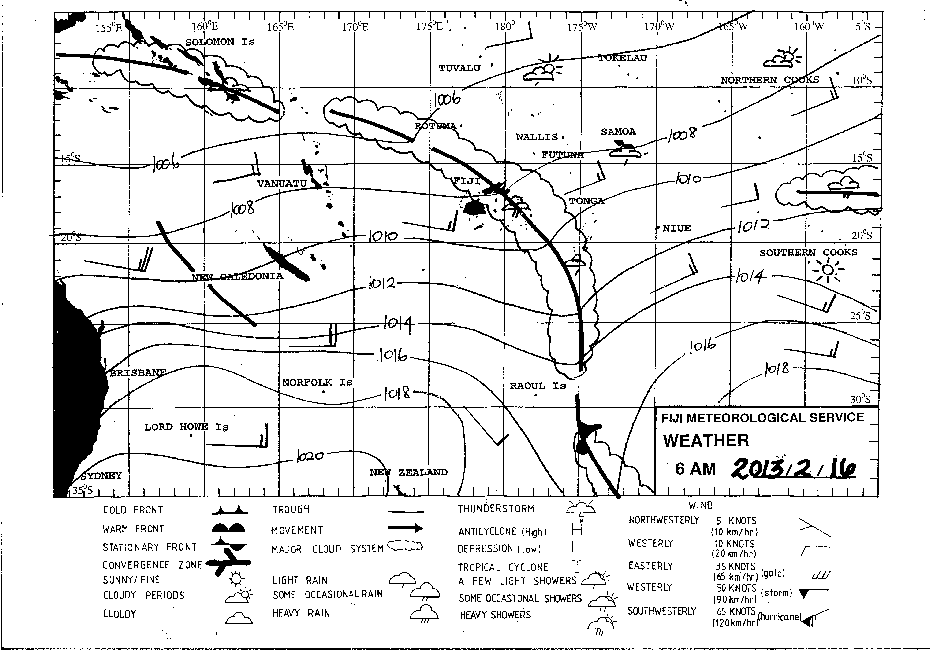 155°E 160°E 165°E 170°E 175°E 180° 175°W 170°W 165°W 160°W 5°S
SOLOMON Is
TUVALU TOKELAU
NORTHERN COOKS
10°S
1006
ROTUMA
WALLIS SAMOA 1008
FUTUNA
15°S 1006 15°S
FIJI 1010
VANUATU
TONGA
1008
NIUE 1012
20°S 1010 20°S
SOUTHERN COOKS
NEW CALEDONIA 1014
1012
1014 25°S
1016 1016
BRISBANE 1018
NORFOLK Is 1018 RAOUL Is
30°S
LORD HOWE Is
1020
SYDNEY NEW ZEALAND
35°S
FIJI METEOROLOGICAL SERVICE
WEATHER
6 AM 2013/2/16
COLD FRONT
WARM FRONT
STATIONARY FRONT
CONVERGENCE ZONE
SUNNY/FINE
CLOUDY PERIODS
CLOUDY
TROUGH
MOVEMENT
MAJOR CLOUD SYSTEM
LIGHT RAIN
SOME OCCASIONAL RAIN
HEAVY RAIN
THUNDERSTORM
ANTICYCLONE (High) H
DEPRESSION (Low)
TROPICAL CYCLONE
A FEW LIGHT SHOWERS
SOME OCCASIONAL SHOWERS
HEAVY SHOWERS
WIND
NORTHWESTERLY 5 KNOTS
(10 km/hr)
WESTERLY 10 KNOTS
(20 km/hr)
EASTERLY 35 KNOTS
(65 km/hr) (gale)
WESTERLY 50 KNOTS
(90 km/hr) (storm)
SOUTHWESTERLY 65 KNOTS
(120 km/hr) (hurricane)